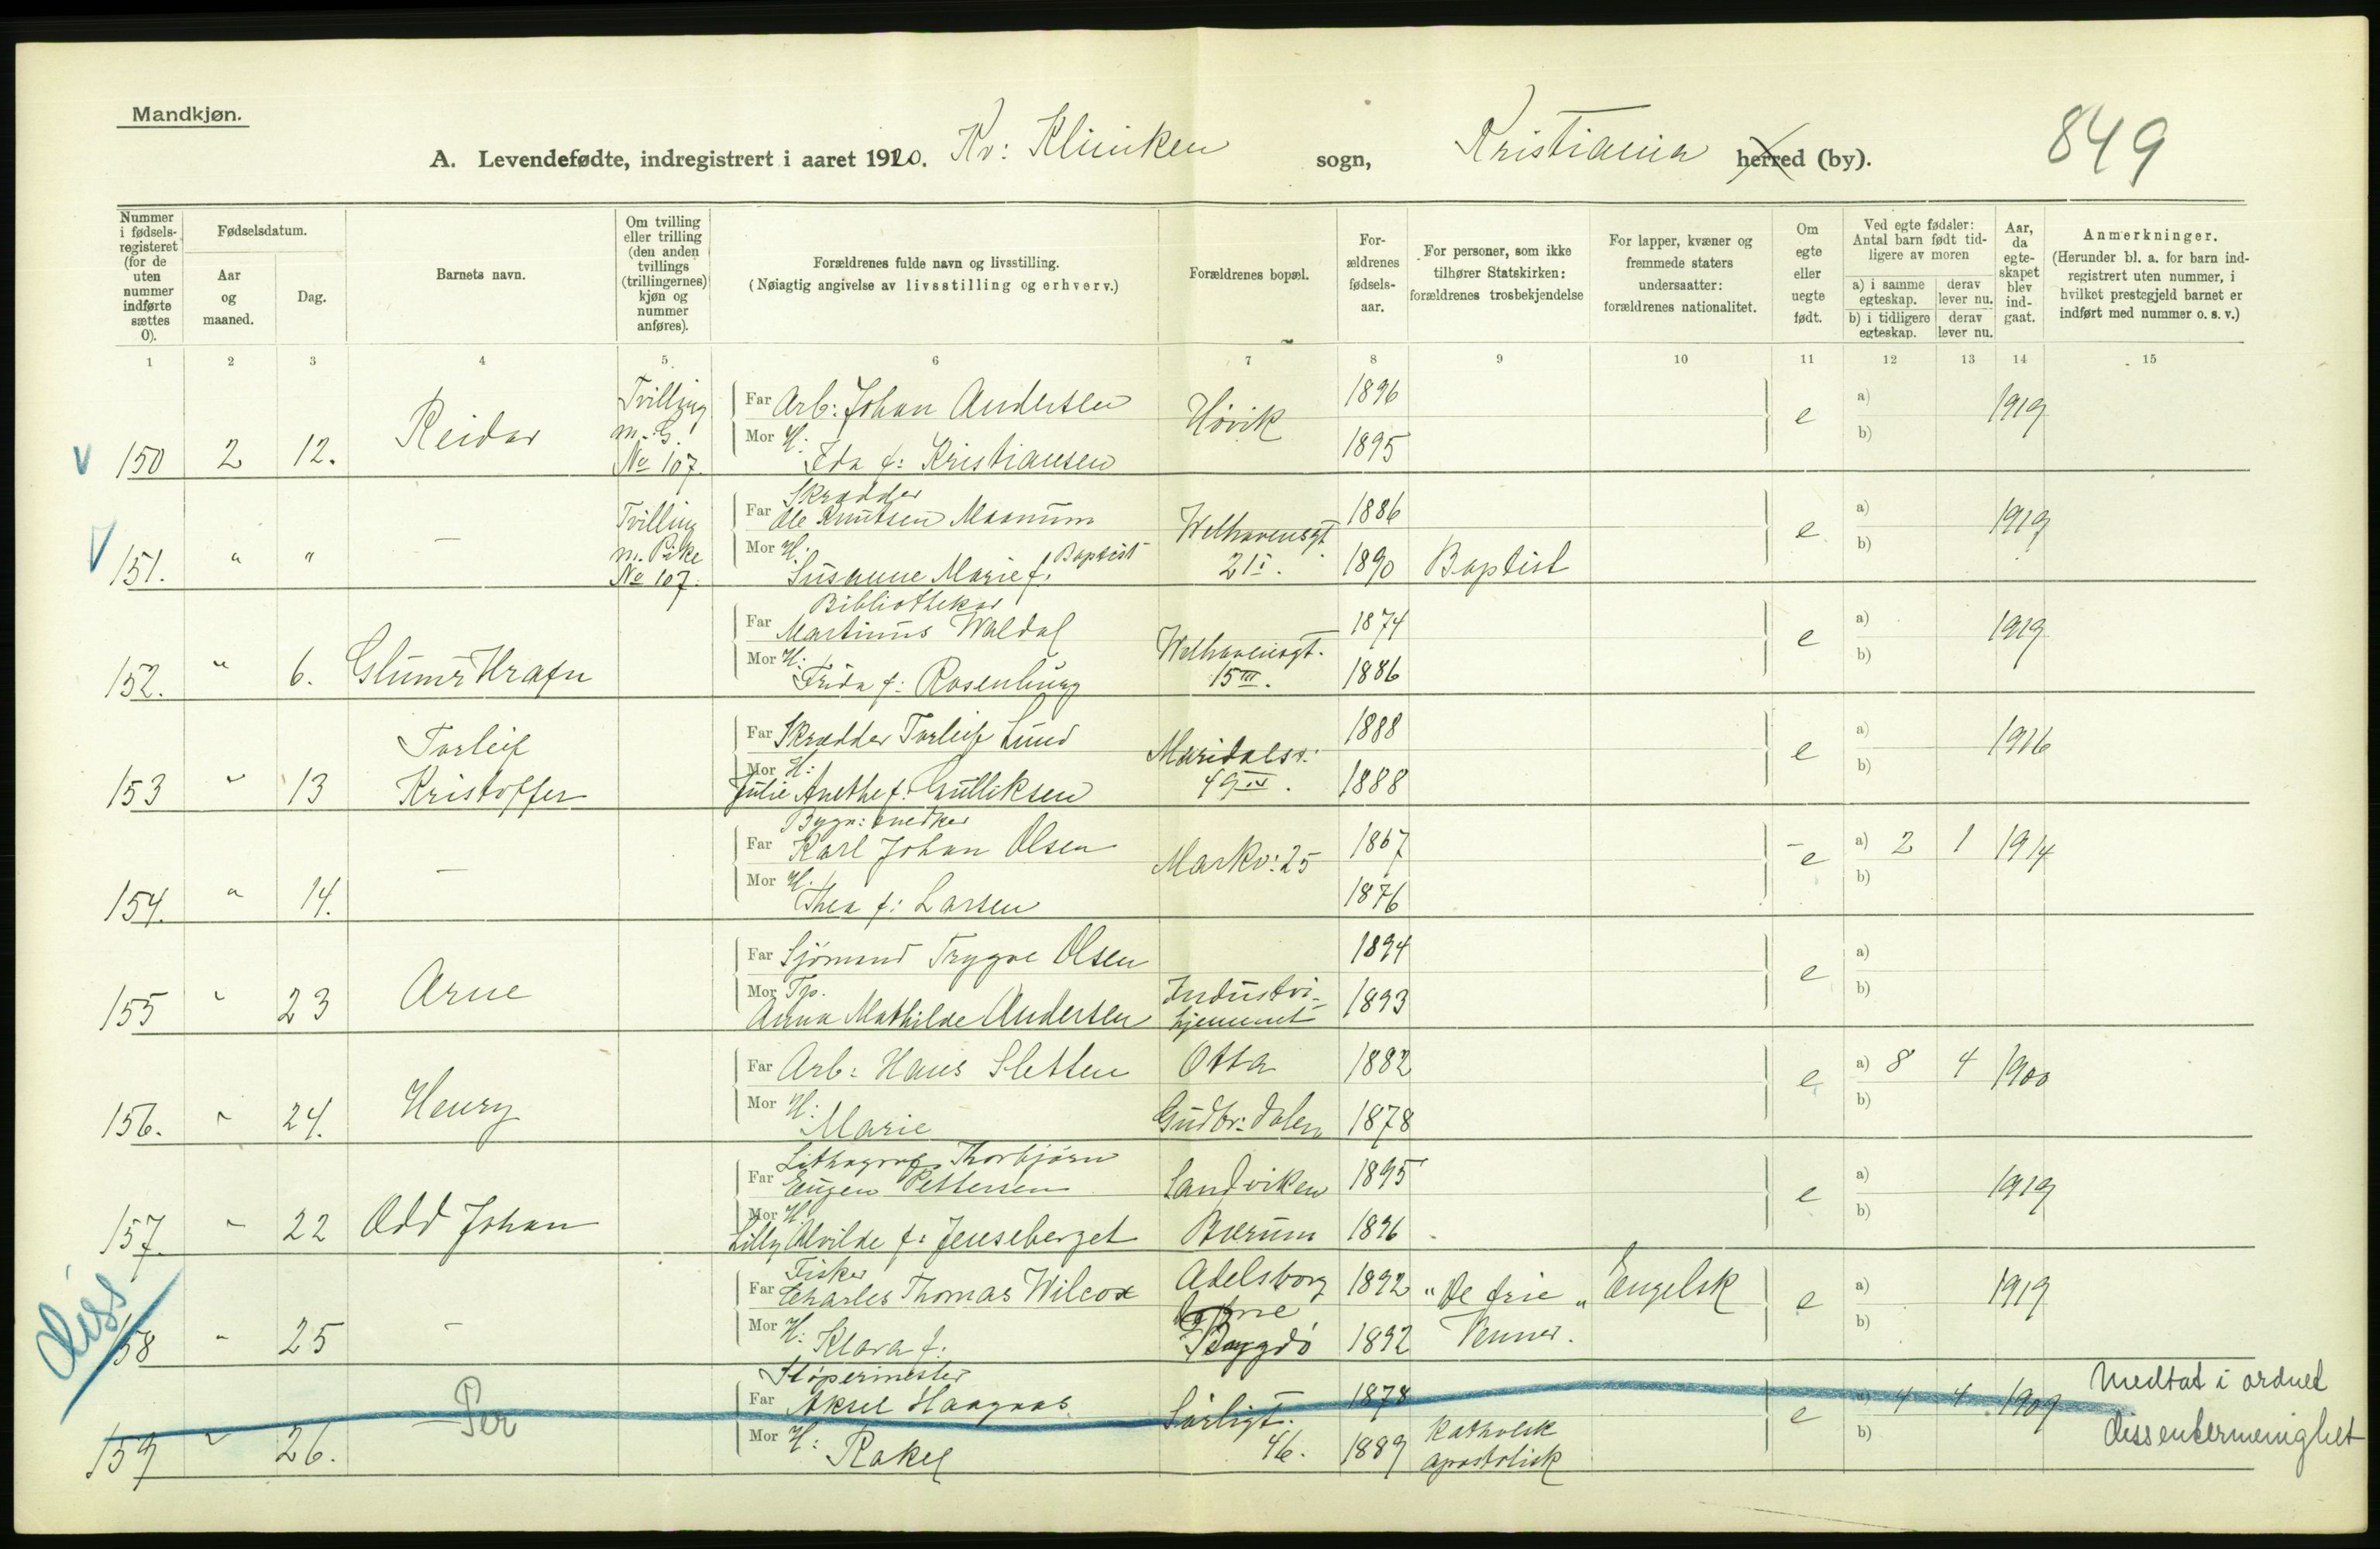 Mandkjøn.
A. Levendefødte, indregistrert i aaret 1920. Kv: Kliniken sogn, Kristiania herred (by). 849
Nummer i fødsels-registeret (for de uten nummer indførte sættes 0).
Fødselsdatum.
Aar og maaned.
Dag.
Barnets navn.
Om tvilling eller trilling (den anden tvillings (trillingernes) kjøn og nummer anføres).
Forældrenes fulde navn og livsstilling.
(Nøiagtig angivelse av livsstilling og erhverv.)
Forældrenes bopæl.
For-ældrenes fødsels-aar.
For personer, som ikke tilhører Statskirken: forældrenes trosbekjendelse
For lapper, kvæner og fremmede staters undersaatter: forældrenes nationalitet.
Om egte eller uegte født.
Ved egte fødsler: Antal barn født tid-ligere av moren
a) i samme egteskap. derav lever nu.
b) i tidligere egteskap. derav lever nu.
Aar, da egte-skapet blev ind-gaat.
Anmerkninger.
(Herunder bl. a. for barn ind-registrert uten nummer, i hvilket prestegjeld barnet er indført med nummer o. s. v.)
1 2 3 4 5 6 7 8 9 10 11 12 13 14 15
V 150 2 12. Reidar Tvilling m. G. No 107.
Far Arb: Johan Andersen Høvik 1896 e a) 1919
Mor H: Ida f: Kristiansen 1895 b)
V 151. " " — Tvilling m. Pike No 107.
Skrædder
Far Ole Knutsen Maanum Welhavensgt. 1886 e a) 1919
Mor H: Susanne Marie f. Baptist 21 I. 1890 Baptist b)
152. " 6. Glumr Hrafn
Bibliothekar
Far Martinus Waldal Welhavensgt. 1874 e a) 1919
Mor H: Frida f: Rosenburg 15 III. 1886 b)
153 " 13 Torleif Kristoffer
Far Skrædder Torleif Lund Maridalsv: 1888 e a) 1916
Mor H: Julie Anethe f: Gulliksen 49 IV. 1888 b)
154. " 14. —
Bygn: snedker
Far Karl Johan Olsen Markv: 25 1867 e a) 2 1 1914
Mor H: Thea f: Larsen 1876 b)
155 " 23 Arne
Far Sjømand Trygve Olsen 1894 e a)
Mor Tp. Anna Mathilde Andersen Industri-hjemmet 1893 b)
156. " 24. Henry
Far Arb: Hans Sletten Otta 1882 e a) 8 4 1900
Mor H: Marie Gudbr: dalen 1878 b)
157. " 22 Odd Johan
Lithograf Thorbjørn
Far Eugen Pettersen Sandviken 1895 e a) 1919
Mor H. Lilly Alvilde f: Jenseberget Bærum 1896 b)
Diss
158 " 25 —
Fisker
Far Charles Thomas Wilcox Adelsborg 1892 "De frie Engelsk e a) 1919
Mor H: Klara f: Bygdö 1892 Venner. b)
159 " 26. — Per
Støpermester
Far Aksel Haagaas Sørligt. 1878 e a) 4 4 1909 Medtat i ordnet
Mor H: Rakel 46. 1889 Katholsk apostolisk b) dissentermenighet